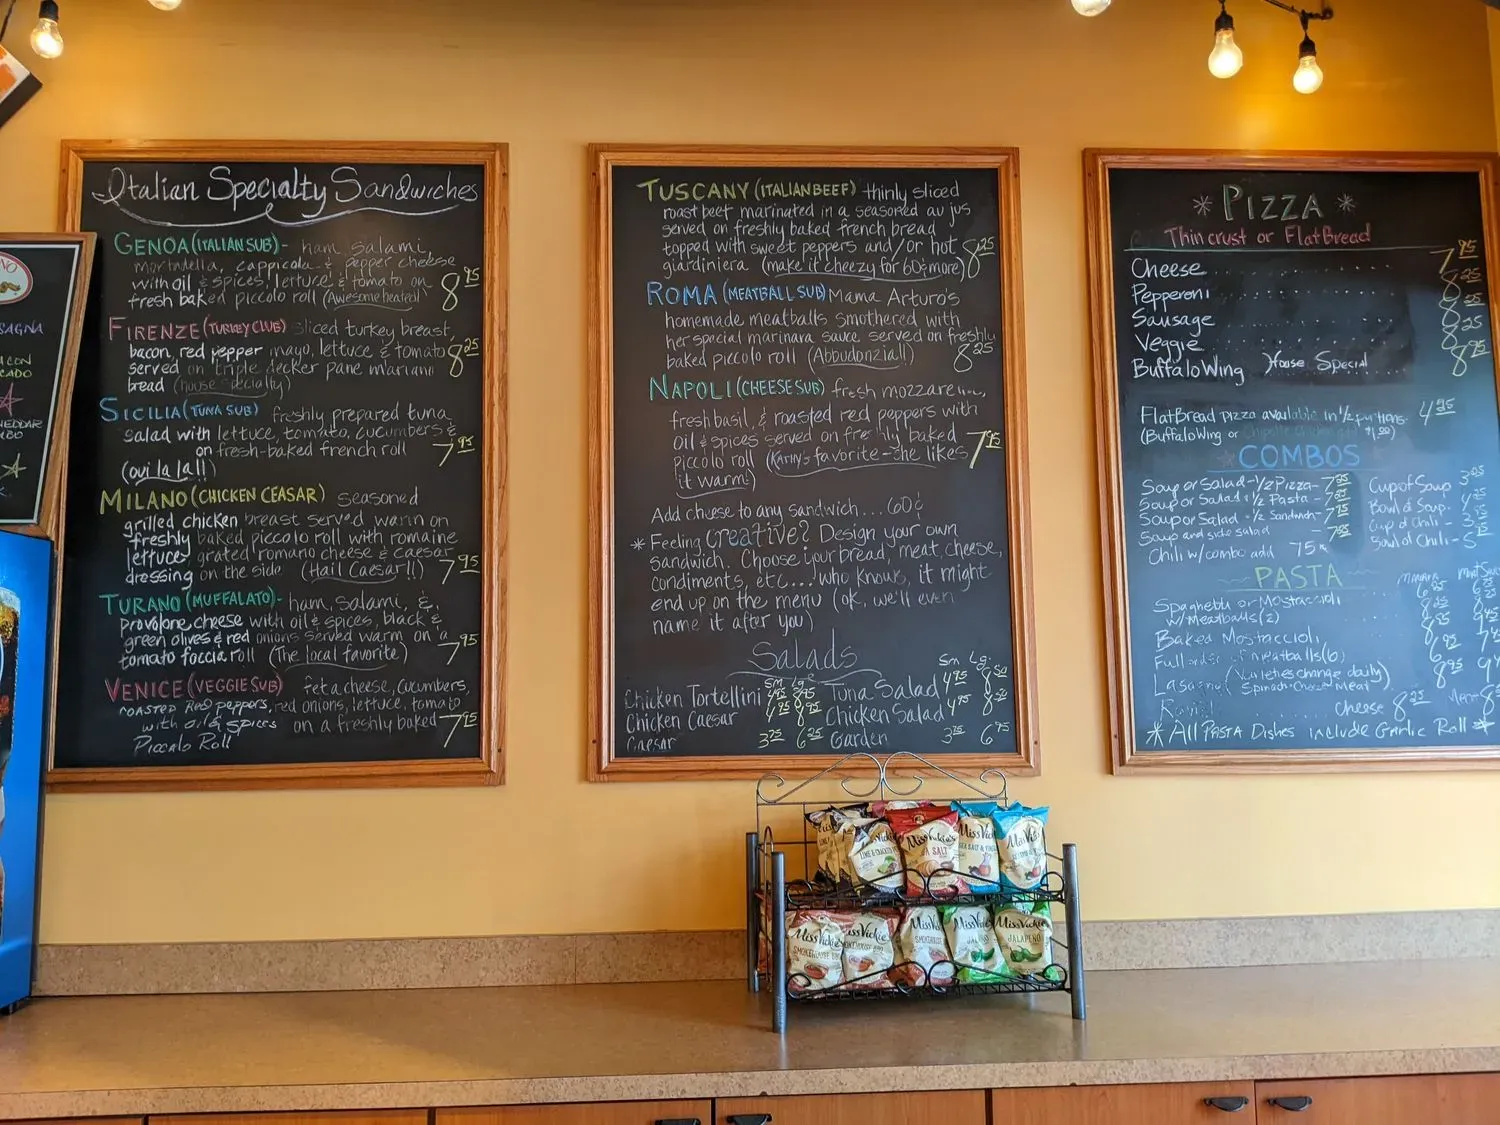 Italian Specialty Sandwiches
GENOA (ITALIAN SUB) - ham, salami,
mortadella, cappicola & pepper cheese
with oil & spices, lettuce & tomato on
fresh baked piccolo roll (Awesome heated!) 8 95
FIRENZE (TURKEY CLUB) sliced turkey breast,
bacon, red pepper mayo, lettuce & tomato
served on triple decker pane mariano 8 25
bread (house specialty)
SICILIA (TUNA SUB) freshly prepared tuna
salad with lettuce, tomato, cucumbers &
on fresh-baked french roll 7 95
(oui la la!!)
MILANO (CHICKEN CEASAR) seasoned
grilled chicken breast served warm on
freshly baked piccolo roll with romaine
lettuce, grated romano cheese & caesar
dressing on the side (Hail Caesar!!) 7 95
TURANO (MUFFALATO) - ham, salami, &
provolone cheese with oil & spices, black &
green olives & red onions served warm on a
tomato foccia roll (The local favorite) 7 95
VENICE (VEGGIE SUB) feta cheese, cucumbers,
ROASTED Red peppers, red onions, lettuce, tomato
with oil & spices on a freshly baked
Piccolo Roll
TUSCANY (ITALIAN BEEF) thinly sliced
roast beef marinated in a seasoned au jus
served on freshly baked french bread
topped with sweet peppers and/or hot
giardiniera (make it cheezy for 60¢ more) 8 25
ROMA (MEATBALL SUB) Mama Arturo's
homemade meatballs smothered with
her special marinara sauce served on freshly
baked piccolo roll (Abbudonzia!!) 8 25
NAPOLI (CHEESE SUB) fresh mozzarella,
fresh basil & roasted red peppers with
oil & spices served on freshly baked
piccolo roll (KATHY'S favorite - she likes 7 95
it warm!)
Add cheese to any sandwich... 60¢
* Feeling creative? Design your own
sandwich. Choose your bread, meat, cheese,
condiments, etc... who knows, it might
end up on the menu (ok, we'll even
name it after you)
Salads
Sm Lg
Sm Lg
Chicken Tortellini 4 95 8 95 Tuna Salad 4 95 8 50
Chicken Caesar 4 95 8 95 Chicken Salad 4 95 8 50
Caesar 3 75 6 25 Garden 3 75 6 75
* PIZZA *
Thin crust or FlatBread
Cheese 7 95
Pepperoni 8 25
Sausage 8 25
Veggie 8 25
Buffalo Wing House Special 8 95
FlatBread pizza available in 1/2 portions- 4 95
(Buffalo Wing or
COMBOS
Soup or Salad - 1/2 Pizza - Cup of Soup
Soup or Salad - 1/2 Pasta - Bowl of Soup -
Soup or Salad - 1/2 Sandwich - Cup of Chili -
Soup and side salad Bowl of Chili -
Chili w/combo add 75¢
PASTA
Spaghetti or Mostaccioli
w/ Meatballs (2)
Baked Mostaccioli
Full order of meatballs (6)
Lasagna (Varieties change daily)
Spinach - Cheese Meat
cheese 8 25
* All PASTA Dishes include Garlic Roll *
Miss Vickie's
SEA SALT
Miss Vickie's
SMOKEHOUSE BBQ
Miss Vickie's
JALAPEÑO